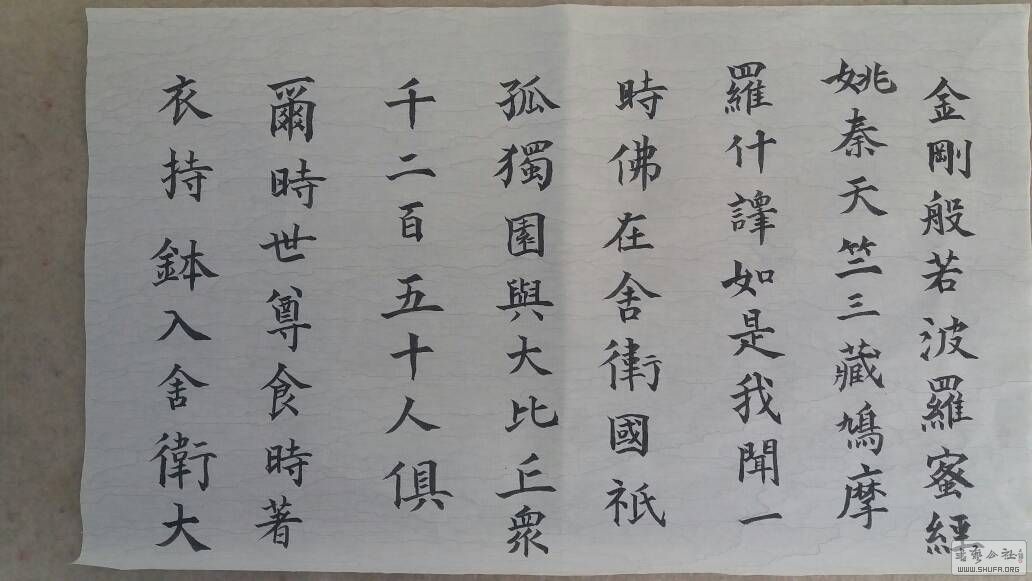 金剛般若波羅蜜經
姚秦天竺三藏鳩摩
羅什譯如是我聞一
時佛在舍衛國祇
孤獨園與大比丘衆
千二百五十人俱
爾時世尊食時著
衣持鉢入舍衛大
书艺公社
WWW.SHUFA.ORG